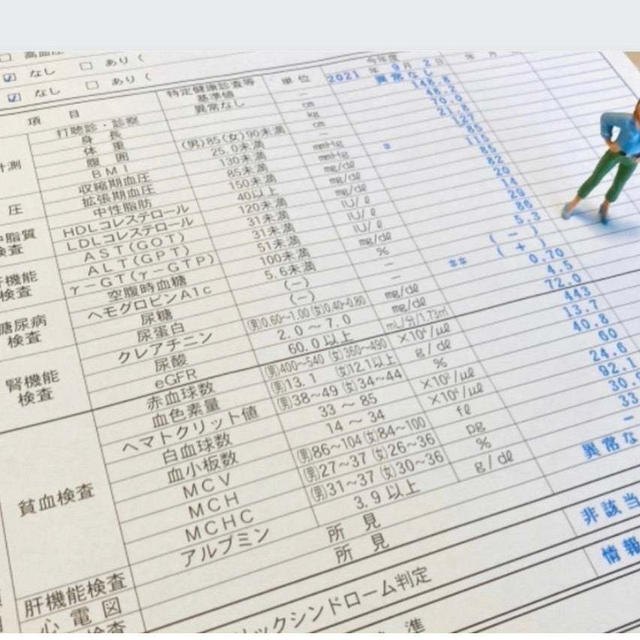 なし □ あり (
なし □ あり (
項 目 特定健康診査等 基準値 単 位 2021 年 9 月 2 日
打聴診・診察 異常なし － 異常なし
身 長 cm
体 重 kg
腹 囲 (男)85(女)90未満 cm
BMI 25.0未満 －
収縮期血圧 130未満 mmHg
拡張期血圧 85未満 mmHg
中性脂肪 150未満
HDLコレステロール 40以上
LDLコレステロール 120未満
AST(GOT) 31未満 IU/ℓ
ALT(GPT) 31未満 IU/ℓ
γ－GT(γ－GTP) 51未満 IU/ℓ
空腹時血糖 100未満 mg/dℓ
ヘモグロビンA1c 5.6未満 % 5.3
尿糖 (－) － (－)
尿蛋白 (－) － ** (＋)
クレアチニン (男)0.60～1.00 (女)0.40～0.80 mg/dℓ 0.70
尿酸 2.0～7.0 mg/dℓ 4.5
eGFR 60.0以上 mL/分/1.73㎡ 72.0
赤血球数 (男)400～540 (女)360～490 ×10⁴/μℓ 443
血色素量 (男)13.1 (女)12.1以上 g/dℓ 13.7
ヘマトクリット値 (男)38～49 (女)34～44 % 40.8
白血球数 33～85 60
血小板数 14～34 24.6
MCV (男)86～104 (女)84～100 fℓ 92.1
MCH (男)27～37 (女)26～36 pg
MCHC (男)31～37 (女)30～36 % 33
アルブミン 3.9以上 g/dℓ －
所 見 異常な
所 見
計測
圧
脂質
検査
肝機能
検査
糖尿病
検査
腎機能
検査
貧血検査
肝機能検査
心電図
リックシンドローム判定 非該当
準 情報